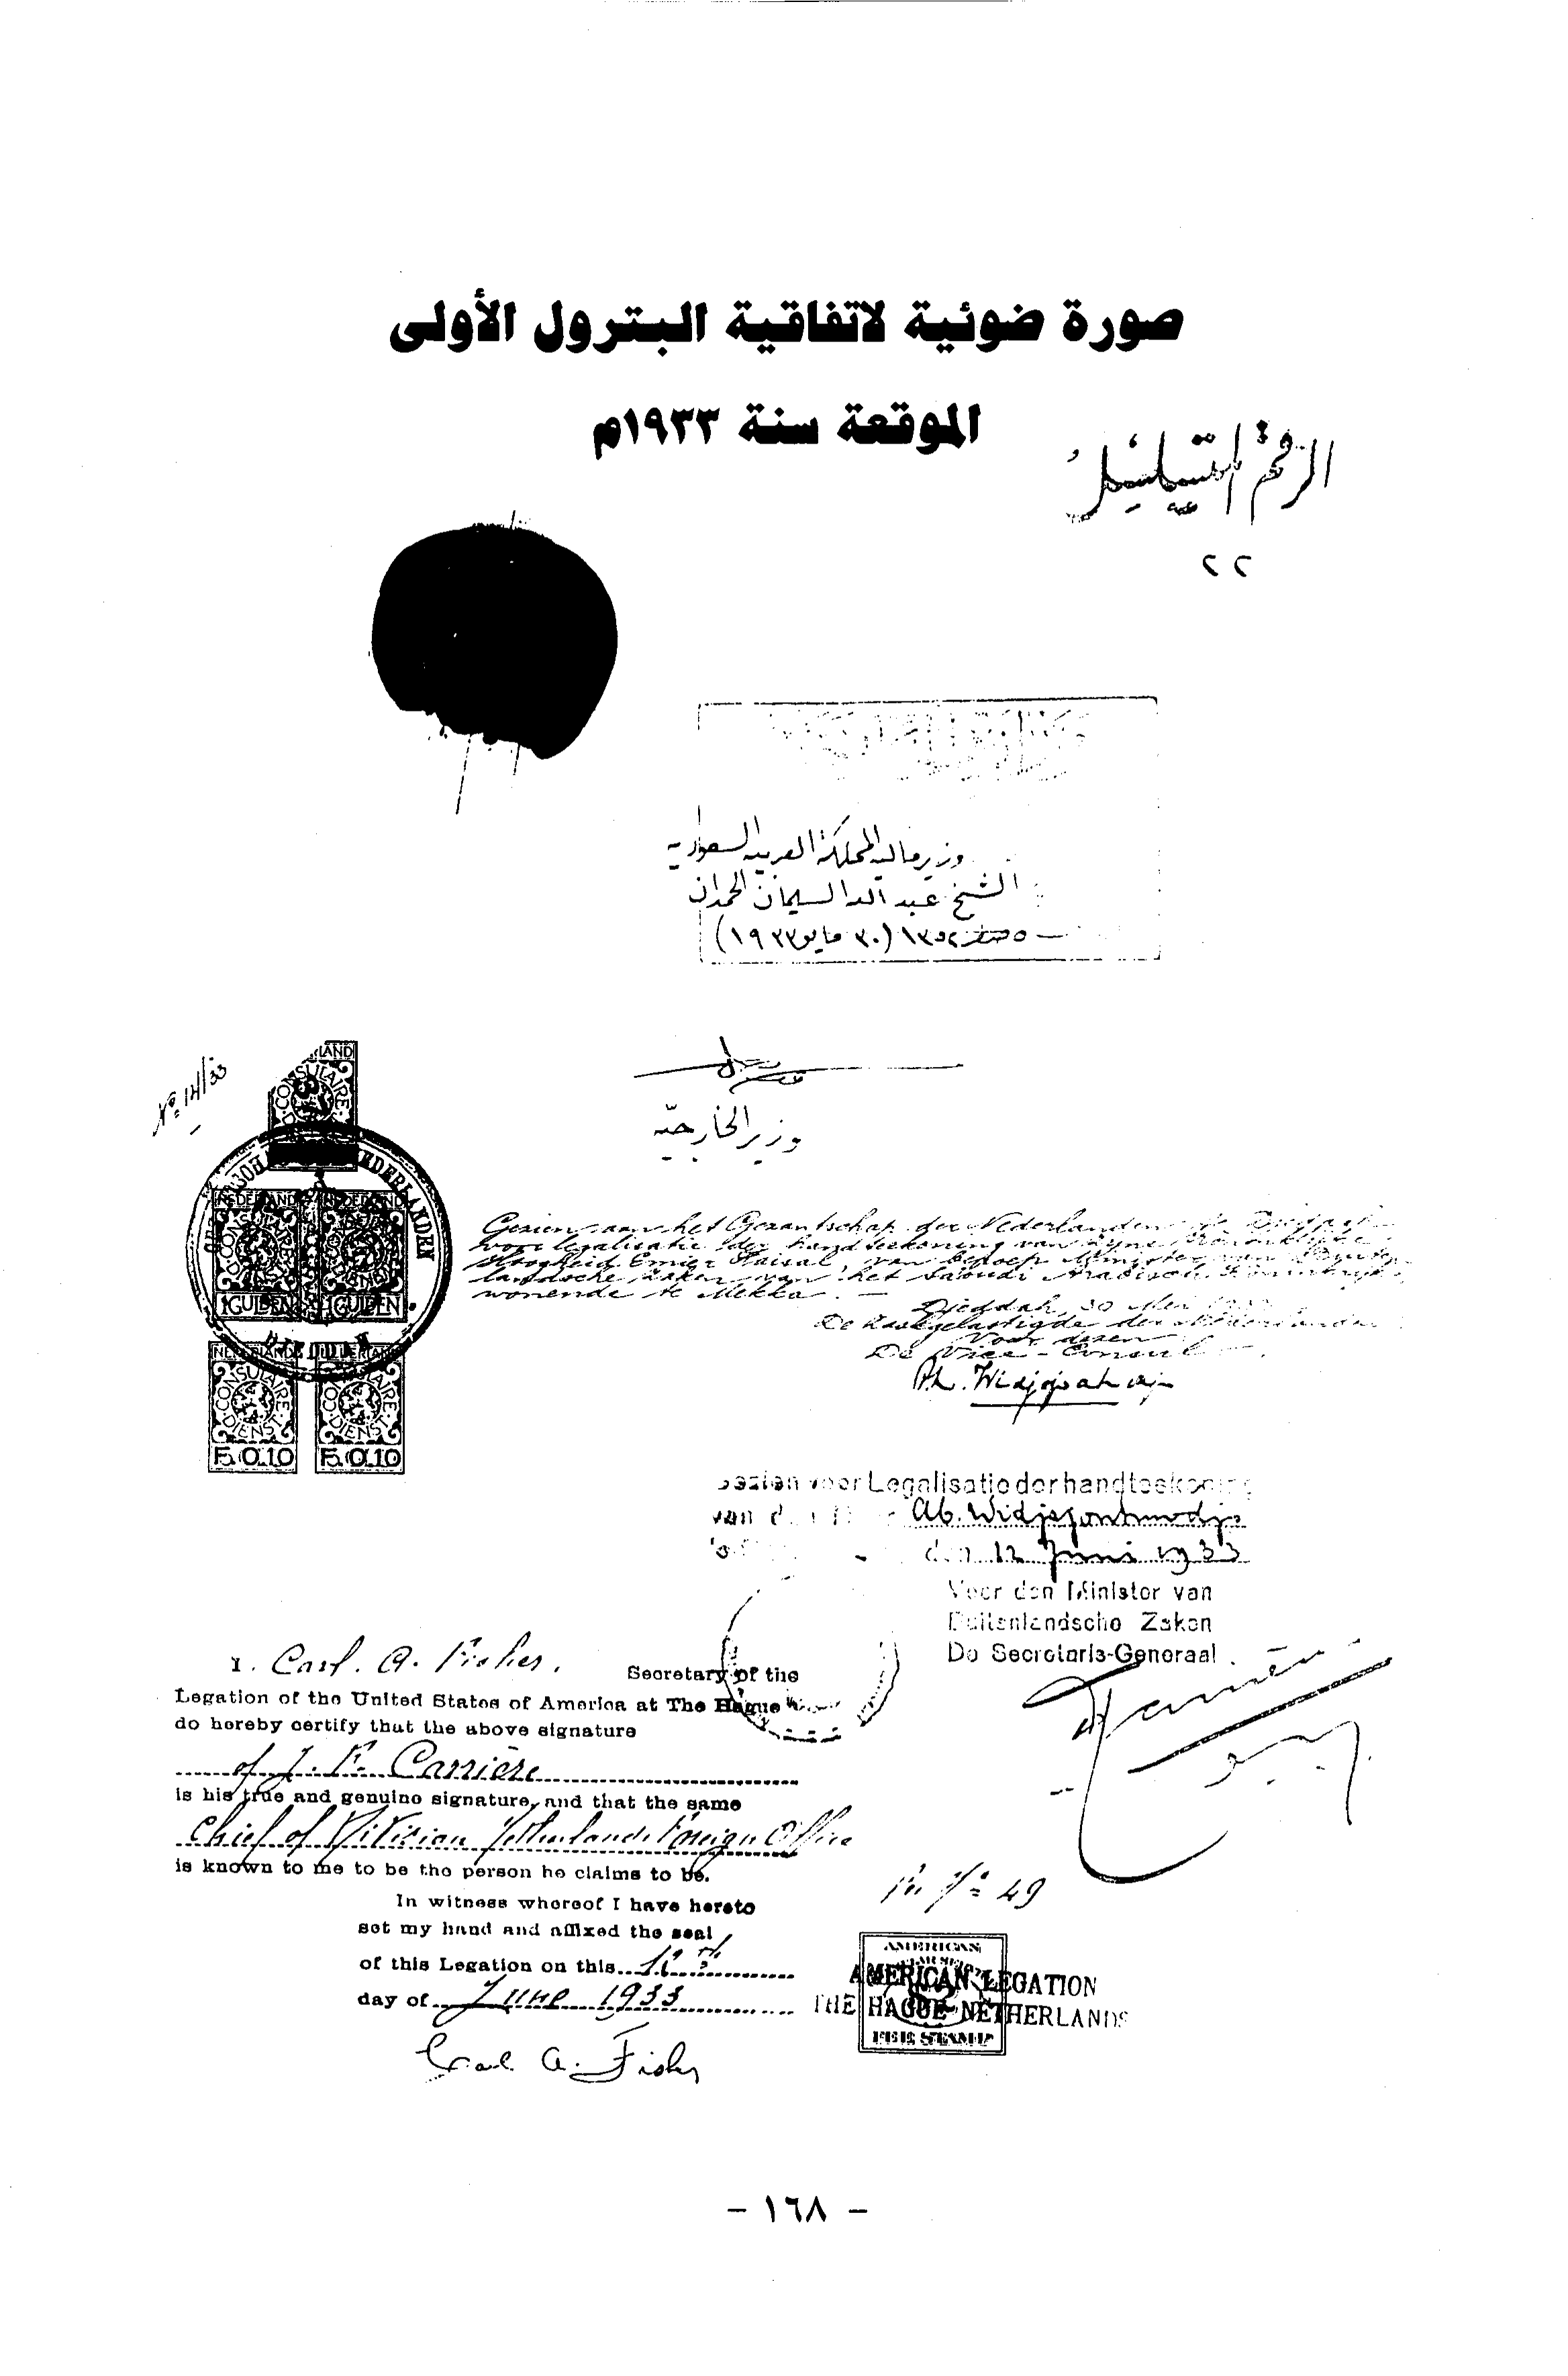 صورة ضوئية لاتفاقية البترول الأولى
الموقعة سنة ١٩٣٣م
الرقم التسلسل
٢٢
وزير مالية المملكة العربية السعودية
الشيخ عبد الله السليمان الحمدان
٥ صفر ١٣٥٢ (٣٠ مايو ١٩٣٣)
وزير الخارجية
No. 14/33
NEDERLAND NEDERLAND
CONSULAIRE DIENST
1 GULDEN 1 GULDEN
CONSULAIRE DIENST CONSULAIRE DIENST
F. 0.10 F. 0.10
Gezien aan het Gezantschap der Nederlanden te Djeddah
voor legalisatie der handteekening van Zijne Koninklijke
Hoogheid Emier Faisal, van beroep Minister van Buiten-
landsche Zaken van het Saoudi Arabisch Koninkrijk
wonende te Mekka.
Djeddah, 30 Mei
De Zaakgelastigde der Nederlanden
Voor dezen
De Vice-Consul
Gezien voor Legalisatie der handteekening
van den
den 12 Juni 1933
Voor den Minister van
Buitenlandsche Zaken
De Secretaris-Generaal
I. Carl. A. Fisher. Secretary of the
Legation of the United States of America at The Hague
do hereby certify that the above signature
of J. K. Carrière
is his true and genuine signature, and that the same
Chief of Division Netherlands Foreign Office
is known to me to be the person he claims to be.
In witness whereof I have hereto
set my hand and affixed the seal
of this Legation on this 12th
day of June 1933
Carl A. Fisher
49
AMERICAN
AMERICAN LEGATION
THE HAGUE NETHERLANDS
FEE STAMP
- ١٦٨ -